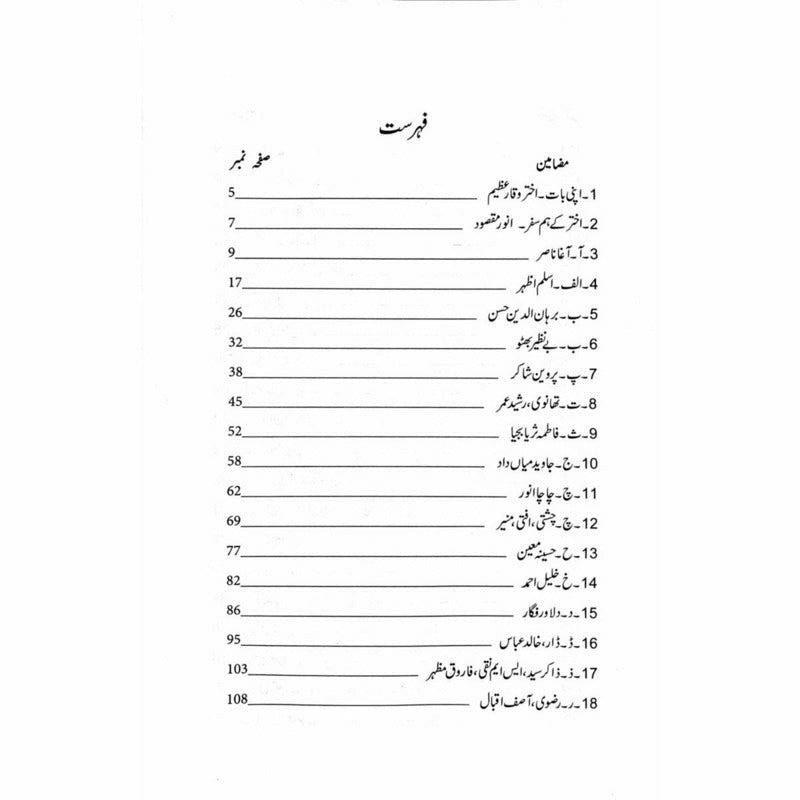 فہرست
مضامین صفحہ نمبر
1۔ اپنی بات۔ اختر وقار عظیم 5
2۔ اختر کے ہم سفر۔ انور مقصود 7
3۔ آ۔ آغا ناصر 9
4۔ الف۔ اسلم اظہر 17
5۔ ب۔ برہان الدین حسن 26
6۔ ب۔ بے نظیر بھٹو 32
7۔ پ۔ پروین شاکر 38
8۔ ت۔ تھانوی، رشید عمر 45
9۔ ث۔ فاطمہ ثریا بجیا 52
10۔ ج۔ جاوید میاں داد 58
11۔ چ۔ چاچا انور 62
12۔ چ۔ چشتی، افتی، منیر 69
13۔ ح۔ حسینہ معین 77
14۔ خ۔ خلیل احمد 82
15۔ د۔ دلاور فگار 86
16۔ ڈ۔ ڈار، خالد عباس 95
17۔ ذ۔ ذاکر سید، ایس ایم نقی، فاروق مظہر 103
18۔ ر۔ رضوی، آصف اقبال 108